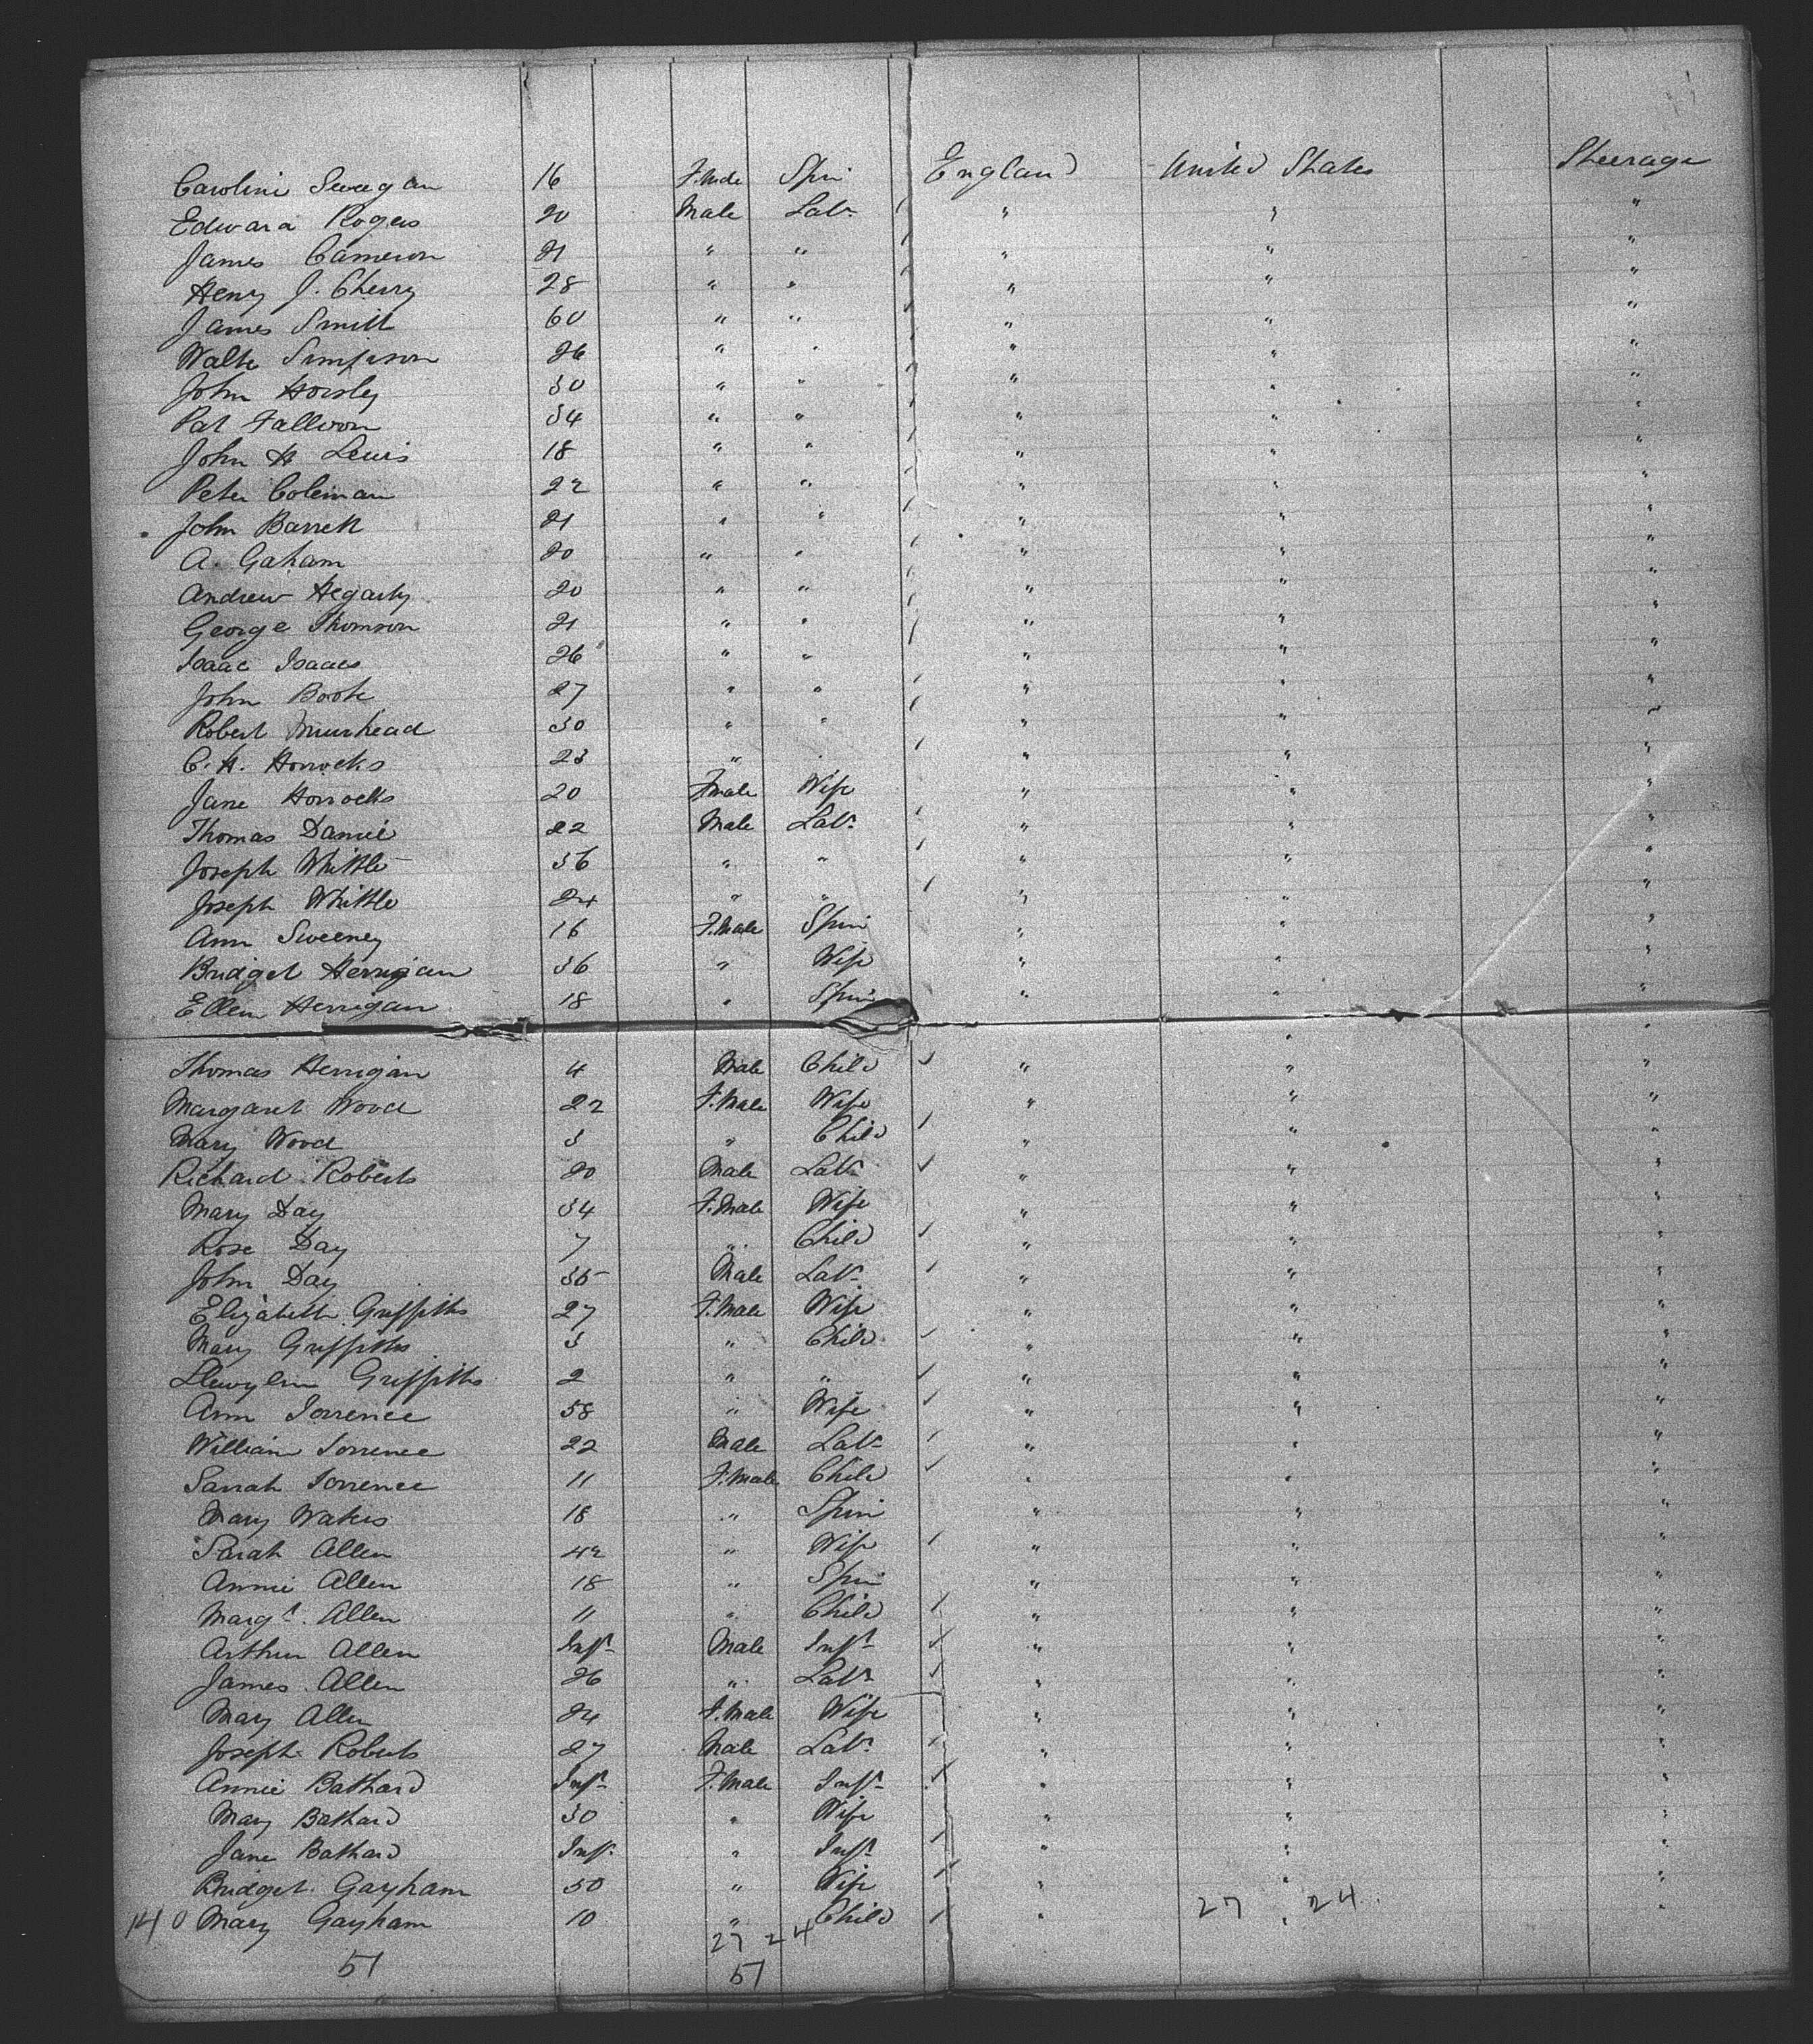 Caroline Swegan 16 F.male Spin England United States Steerage
Edward Rogers 20 Male Labr " " "
James Cameron 21 " " " " "
Henry J. Cherry 28 " " " " "
James Smith 60 " " " " "
Walter Simpson 26 " " " " "
John Horsley 30 " " " " "
Pat Falloon 34 " " " " "
John H Lewis 18 " " " " "
Peter Coleman 22 " " " " "
John Barrett 21 " " " " "
A. Gaham 20 " " " " "
Andrew Hegarty 20 " " " " "
George Thomson 21 " " " " "
Isaac Isaacs 26 " " " " "
John Booth 27 " " " " "
Robert Muirhead 30 " " " " "
C. H. Horrocks 23 " " " " "
Jane Horrocks 20 Fmale Wife " " "
Thomas Daniel 22 Male Labr " " "
Joseph Whittle 36 " " " " "
Joseph Whittle 24 " " " " "
Ann Sweeney 16 F.male Spin " " "
Bridget Herrigan 36 " Wife " " "
Ellen Herrigan 18 " Spin " " "
Thomas Herrigan 4 Male Child " " "
Margaret Wood 22 F.Male Wife " " "
Mary Wood 3 " Child " " "
Richard Roberts 20 Male Labr " " "
Mary Day 34 F.Male Wife " " "
Rose Day 7 " Child " " "
John Day 35 Male Labr " " "
Elizabeth Griffiths 27 F.Male Wife " " "
Mary Griffiths 3 " Child " " "
Llewylin Griffiths 2 " " " " "
Ann Torrence 58 " Wife " " "
William Torrence 22 Male Labr " " "
Sarah Torrence 11 F.Male Child " " "
Mary Waters 18 " Spin " " "
Sarah Allen 42 " Wife " " "
Annie Allen 18 " Spin " " "
Margt. Allen 11 " Child " " "
Arthur Allen Inft Male Inft " " "
James Allen 26 " Labr " " "
Mary Allen 24 F.Male Wife " " "
Joseph Roberts 27 Male Labr " " "
Annie Bathard Inft F.Male Inft " " "
Mary Bathard 30 " Wife " " "
Jane Bathard Inft " Inft " " "
Bridget Gayham 50 " Wife " " "
140 Mary Gayham 10 " Child " " "
27 24
27 24
51 51